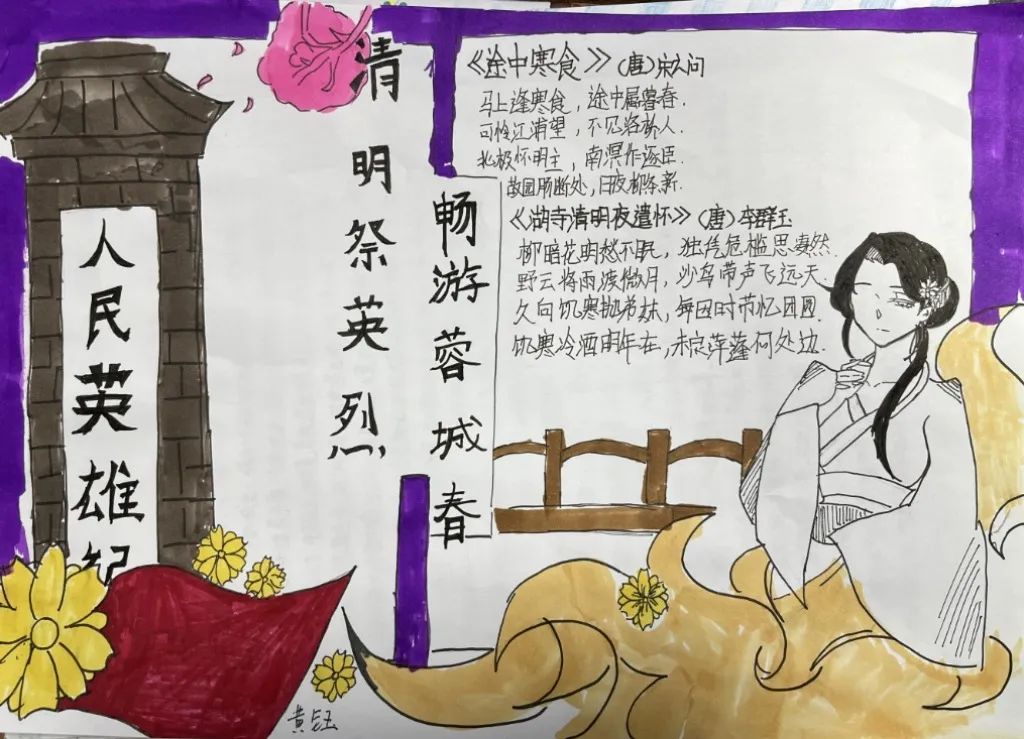 人民英雄纪
清明祭英烈
畅游蓉城春
《途中寒食》(唐)宋之问
马上逢寒食，途中属暮春.
可怜江浦望，不见洛桥人.
北极怀明主，南溟作逐臣.
故园肠断处，日夜柳条新.
《湖寺清明夜遣怀》(唐)李群玉
柳暗花明愁不眠，独凭危槛思凄然.
野云将雨渡微月，沙鸟带声飞远天.
久向饥寒抛弟妹，每因时节忆团圆.
饥寒冷酒明年在，未定萍蓬何处边.
黄钰